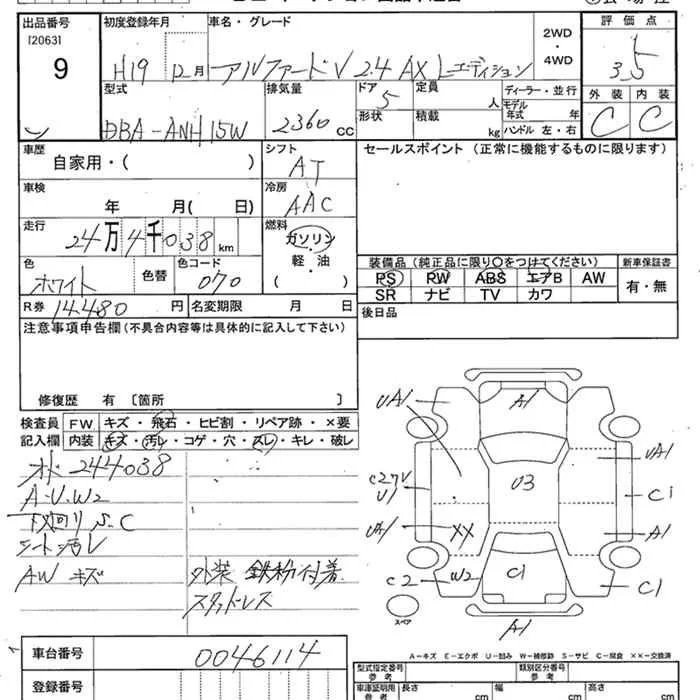 出品番号 初度登録年月 車名・グレード 2WD・4WD 評価点
[2063]
9 H19 12月 アルファードV 2.4 AX Lエディション 3.5
型式 排気量 ドア 定員 ディーラー・並行 外装 内装
DBA-ANH15W 2360cc 5 人 モデル年式 年 C C
形状 積載 kg ハンドル 左・右
車歴 シフト セールスポイント (正常に機能するものに限ります)
自家用・( ) AT
車検 冷房
年 月( 日) AAC
走行 燃料
24万4千038km ガソリン
軽・油
( )
色 色替 色コード 装備品 (純正品に限り○をつけてください) 新車保証書
ホワイト 070 PS PW ABS エアB AW 有・無
SR ナビ TV カワ
R券 14.480円 名変期限 月 日 後日品
注意事項申告欄 (不具合内容等は具体的に記入して下さい)
修復歴 有 [箇所 ]
検査員 FW キズ・飛石・ヒビ割・リペア跡・×要
記入欄 内装 キズ・汚レ・コゲ・穴・スレ・キレ・破レ
オド 244038
A・U・W2
下回り S.C
シート汚レ
AW キズ 外装 鉄粉付着
スタッドレス
A1
UA1 UA1
U3
C2 U1 C1
UA1 XX A1
C2 W2 C1 C1
スペア A1
A-キズ E-エクボ U-凹み W-補修跡 S-サビ C-腐食 XX-交換済
車台番号 0046114
登録番号
型式指定番号 参考 類別区分番号 参考
車庫証明用 参考 長さ cm 幅 cm 高さ cm